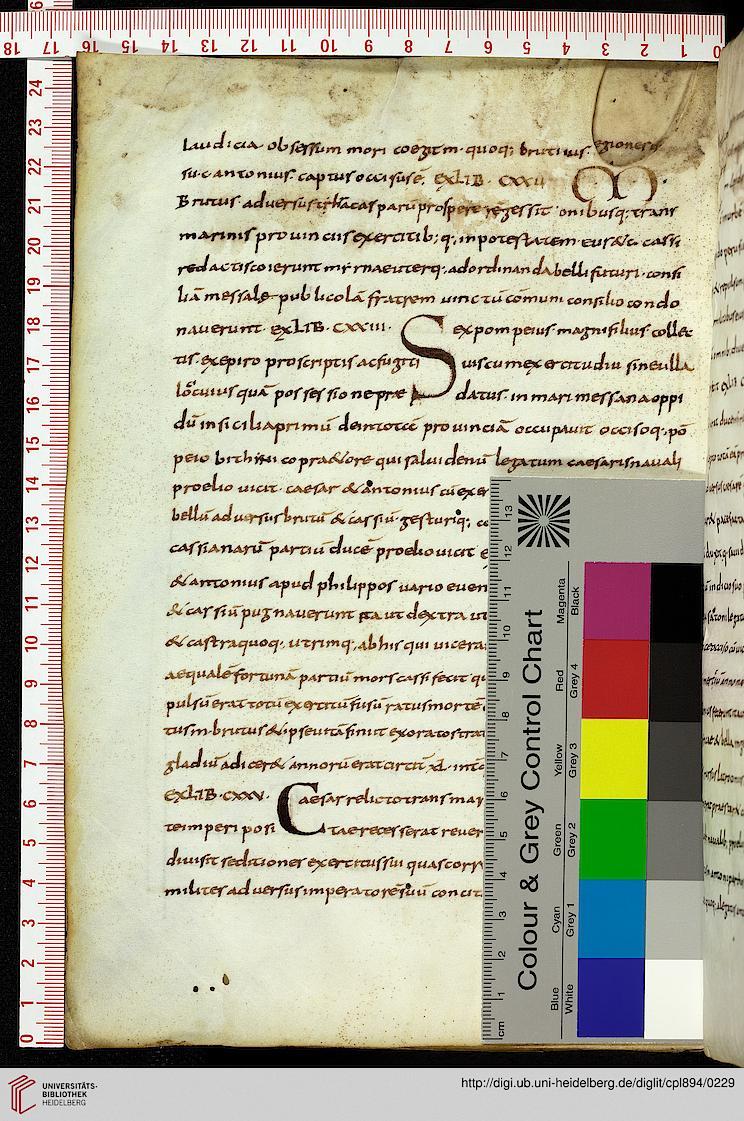 laudicia obsessum mori coegit m quoq; brutiuus egionesq
su c antonius captus occisus ē. EX LIB CXXII M
Brutus adversus thracas parū prospere regessit onibusq; trans
marinis provinciis exercitib; q; in potestatem eius & c cassi
redactis coierunt myrnae uterq; ad ordinanda belli futuri consi
liā messale publicolā fratrem uinctū cōmuni consilio condo
nauerunt. EX LIB CXXIII. Sex pompeius magni filius collec
tis ex epiro proscriptis ac fugiti uis cum exercitu diu sine ulla
loci cuius quā possessione prae datus in mari messana oppi
dū in sicilia primū dein totā prouinciā occupauit occisoq; pō
peio bithinico pra&ore qui saluidenū legatum caesaris nauali
proelio uicit caesar & antonius cū exer
bellū aduersus brutū & cassiū gesturi q;
cassianarū partiū ducē proelio uicit
& antonius apud philippos uario euen
& cassiū pugnauerunt ita ut dextra ut
& castra quoq; utrimq; ab his qui uicera
aequalē fortunā partiū mors cassi fecit qu
pulsū erat totū exercitū fusū ratus mortē
tus m brutus & ipse uitā finiit exorato stra
gladiū adicer& annorū erat circit XL int
EX LIB CXXV Caesar relicto trans mar
te imperi posi ta ea recesserat reuer
diuisit seditiones exercitus sui quas corr
milites aduersus imperatorē suū concit
Colour & Grey Control Chart
Blue Cyan Green Yellow Red Magenta
White Grey 1 Grey 2 Grey 3 Grey 4 Black
cm 1 2 3 4 5 6 7 8 9 10 11 12 13
UNIVERSITÄTS-
BIBLIOTHEK
HEIDELBERG
http://digi.ub.uni-heidelberg.de/diglit/cpl894/0229